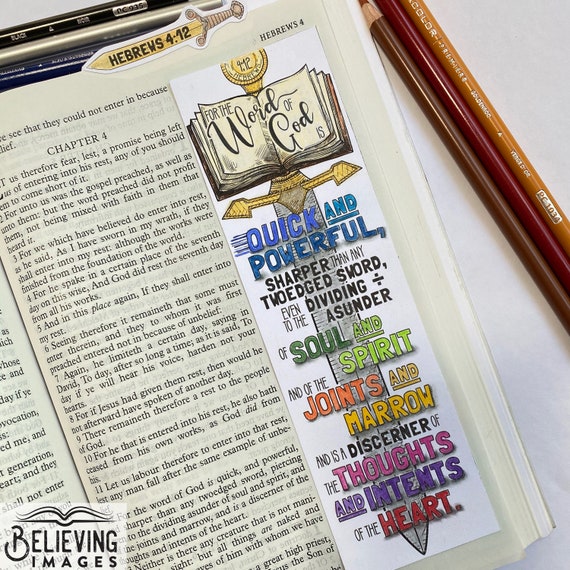 HEBREWS 4:12
HEBREWS 4
see that they could not enter in because
CHAPTER 4
us therefore fear, lest, a promise being left
of entering into his rest, any of you should
to come short of it.
2 For unto us was the gospel preached, as well as
unto them: but the word preached did not profit
them, not being mixed with faith in them that
heard it.
3 For we which have believed do enter into rest,
as he said, As I have sworn in my wrath, if they
shall enter into my rest: although the works were
finished from the foundation of the world.
4 For he spake in a certain place of the seventh
day on this wise, And God did rest the seventh day
from all his works.
5 And in this place again, If they shall enter into
my rest.
6 Seeing therefore it remaineth that some must
enter therein, and they to whom it was first
preached entered not in because of unbelief:
7 Again, he limiteth a certain day, saying in
David, To day, after so long a time; as it is said, To
day if ye will hear his voice, harden not your
hearts.
8 For if Jesus had given them rest, then would he
not afterward have spoken of another day.
9 There remaineth therefore a rest to the people
of God.
10 For he that is entered into his rest, he also hath
ceased from his own works, as God did from
his.
11 Let us labour therefore to enter into that rest,
lest any man fall after the same example of unbe-
For the word of God is quick, and powerful,
sharper than any twoedged sword, piercing
the dividing asunder of soul and spirit, and
and marrow, and is a discerner of the
intents of the heart.
Neither is there any creature that is not
sight: but all things are naked and
eyes of him with whom we have
a great high priest,
the Son of
4:12
FOR THE Word OF God IS
QUICK AND
POWERFUL,
SHARPER THAN ANY
TWOEDGED SWORD,
EVEN TO THE DIVIDING ASUNDER
OF SOUL AND
SPIRIT
AND OF THE
JOINTS AND
MARROW
AND IS A DISCERNER OF
THE THOUGHTS
AND INTENTS
OF THE HEART.
BELIEVING
IMAGES